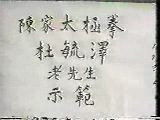 陳家太極拳
杜毓澤
老先生
示範